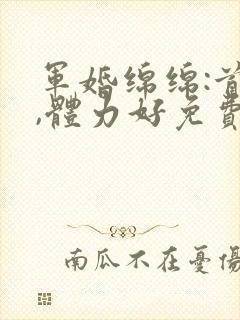 軍婚綿綿:首
,體力好免費
南瓜不在憂傷